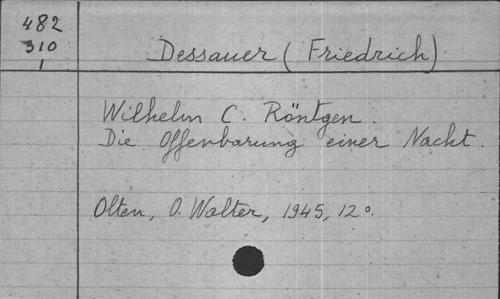 482
310
1
Dessauer (Friedrich)
Wilhelm C. Röntgen.
Die Offenbarung einer Nacht.
Olten, O. Walter, 1945, 12°.